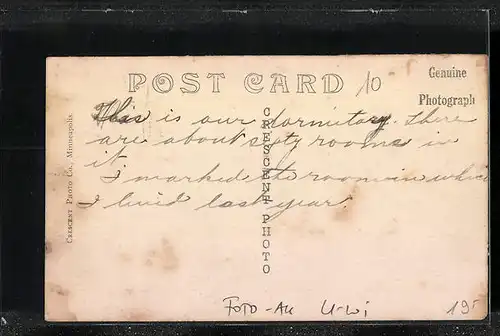 POST CARD
10
Genuine
Photograph
This is our dormitory. There
are about sixty rooms in
it.
I marked the room in which
I lived last year.
CRESCENT PHOTO
CRESCENT PHOTO CO., Minneapolis.
FOTO-AK U-Wi
19